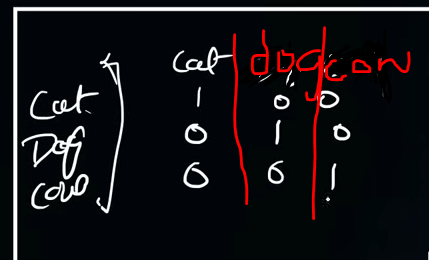 cat dog cow
Cat 1 0 0
Dog 0 1 0
Cow 0 0 1